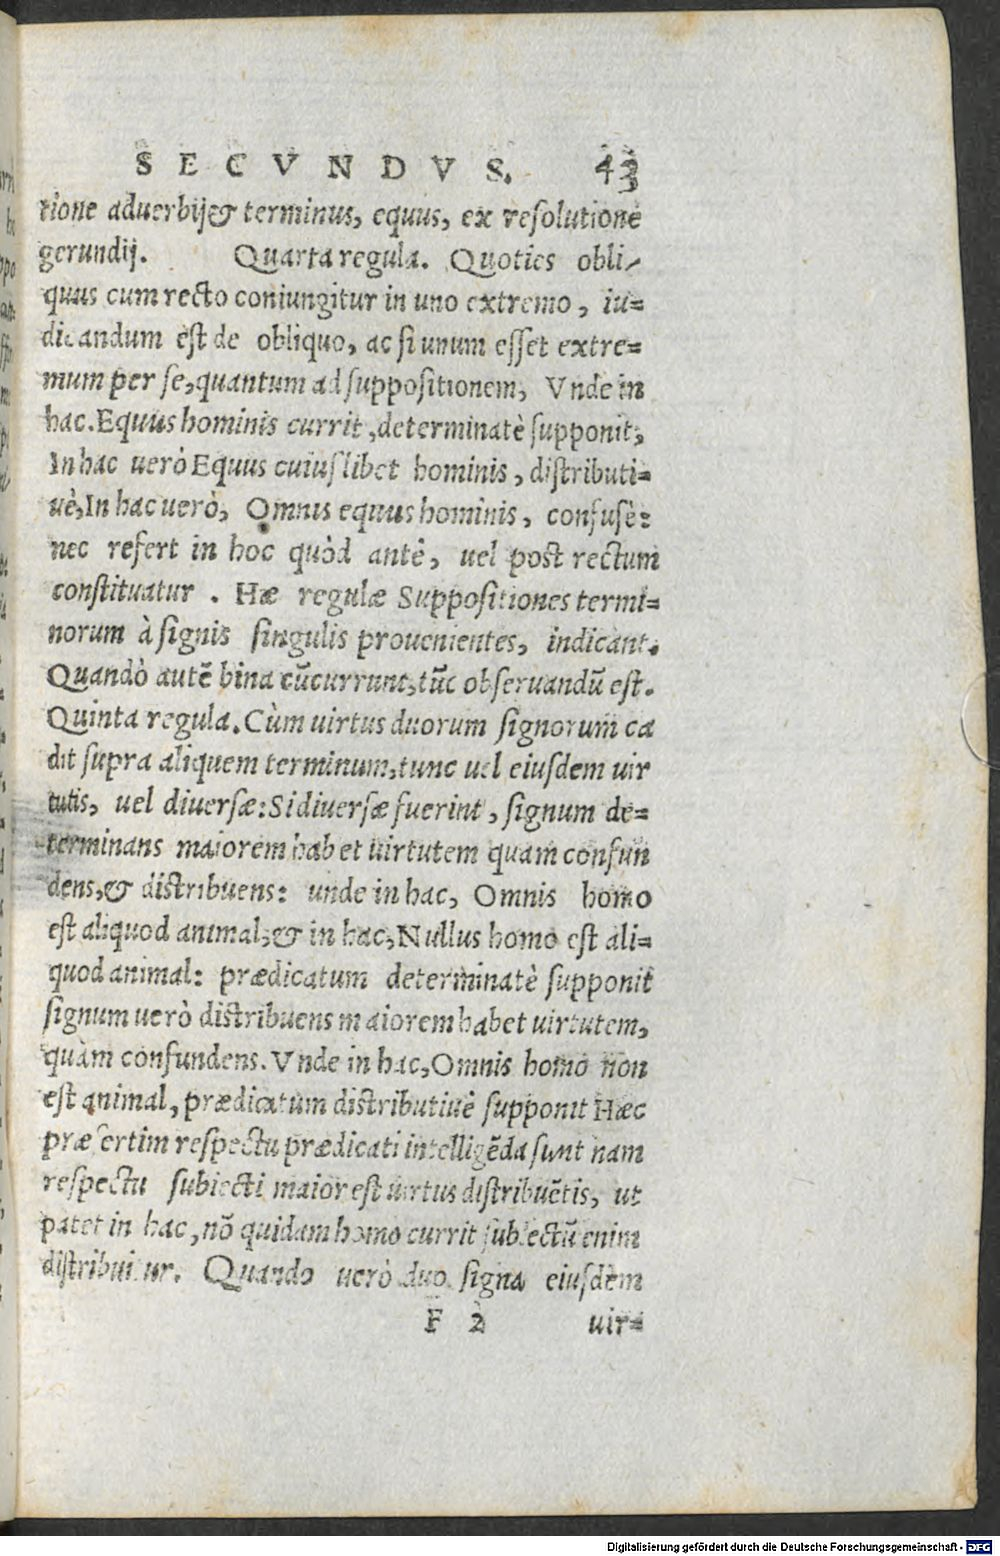 SECVNDVS. 43
tione aduerbij& terminus, equus, ex resolutione
gerundij. Quarta regula. Quoties obli-
quus cum recto coniungitur in uno extremo, iu=
dicandum est de obliquo, ac si unum esset extre=
mum per se, quantum ad suppositionem, Vnde in
hac. Equus hominis currit, determinatè supponit;
In hac uerò Equus cuiuslibet hominis, distributi=
uè, In hac uerò, Omnis equus hominis, confusè:
nec refert in hoc quòd antè, uel post rectum
constituatur. Hæ regulæ Suppositiones termi=
norum à signis singulis prouenientes, indicant.
Quandò autē bina cūcurrunt, tūc obseruandū est.
Quinta regula. Cùm uirtus duorum signorum ca
dit supra aliquem terminum, tunc uel eiusdem uir
tutis, uel diuersæ: Si diuersæ fuerint, signum de=
terminans maiorem habet uirtutem quam confun
dens, & distribuens: unde in hac, Omnis homo
est aliquod animal, & in hac, Nullus homo est ali=
quod animal: prædicatum determinatè supponit
signum uerò distribuens maiorem habet uirtutem,
quàm confundens. Vnde in hac, Omnis homo non
est animal, prædicatum distributiuè supponit Hæc
præsertim respectu prædicati intelligēda sunt nam
respectu subiecti maior est uirtus distribuētis, ut
patet in hac, nō quidam homo currit subiectū enim
distribuitur. Quando uerò duo signa eiusdem
F 2 uir=
Digitalisierung gefördert durch die Deutsche Forschungsgemeinschaft - DFG